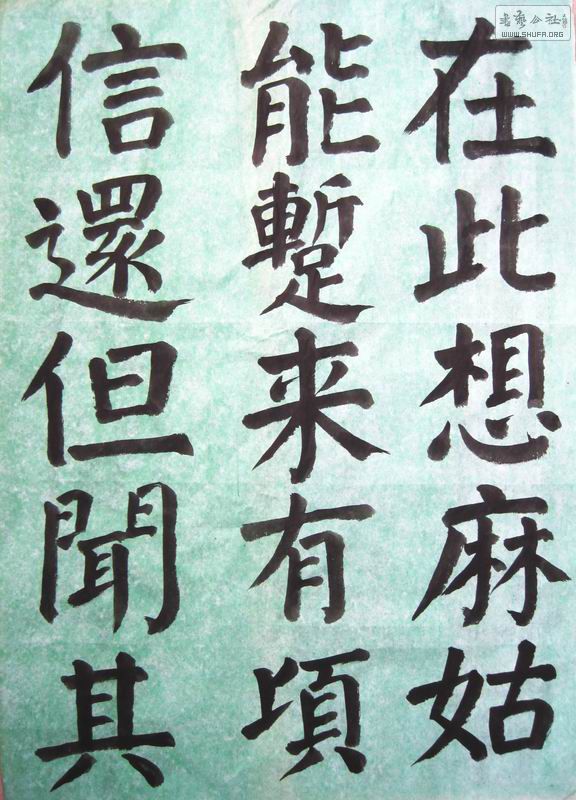 在此想麻姑
能蹔来有頃
信還但聞其
书艺公社
WWW.SHUFA.ORG